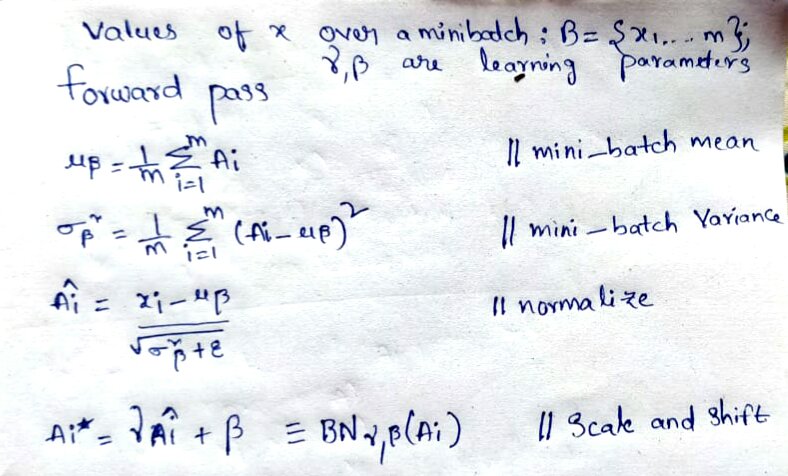 Values of x over a minibatch : B = {x1,....m};
γ,β are learning parameters
forward pass
μβ = 1/m Σ_{i=1}^{m} Ai // mini-batch mean
σβ² = 1/m Σ_{i=1}^{m} (Ai - μβ)² // mini-batch Variance
Âi = (xi - μβ) / √(σβ² + ε) // normalize
Ai* = γÂi + β ≡ BNγ,β(Ai) // Scale and Shift